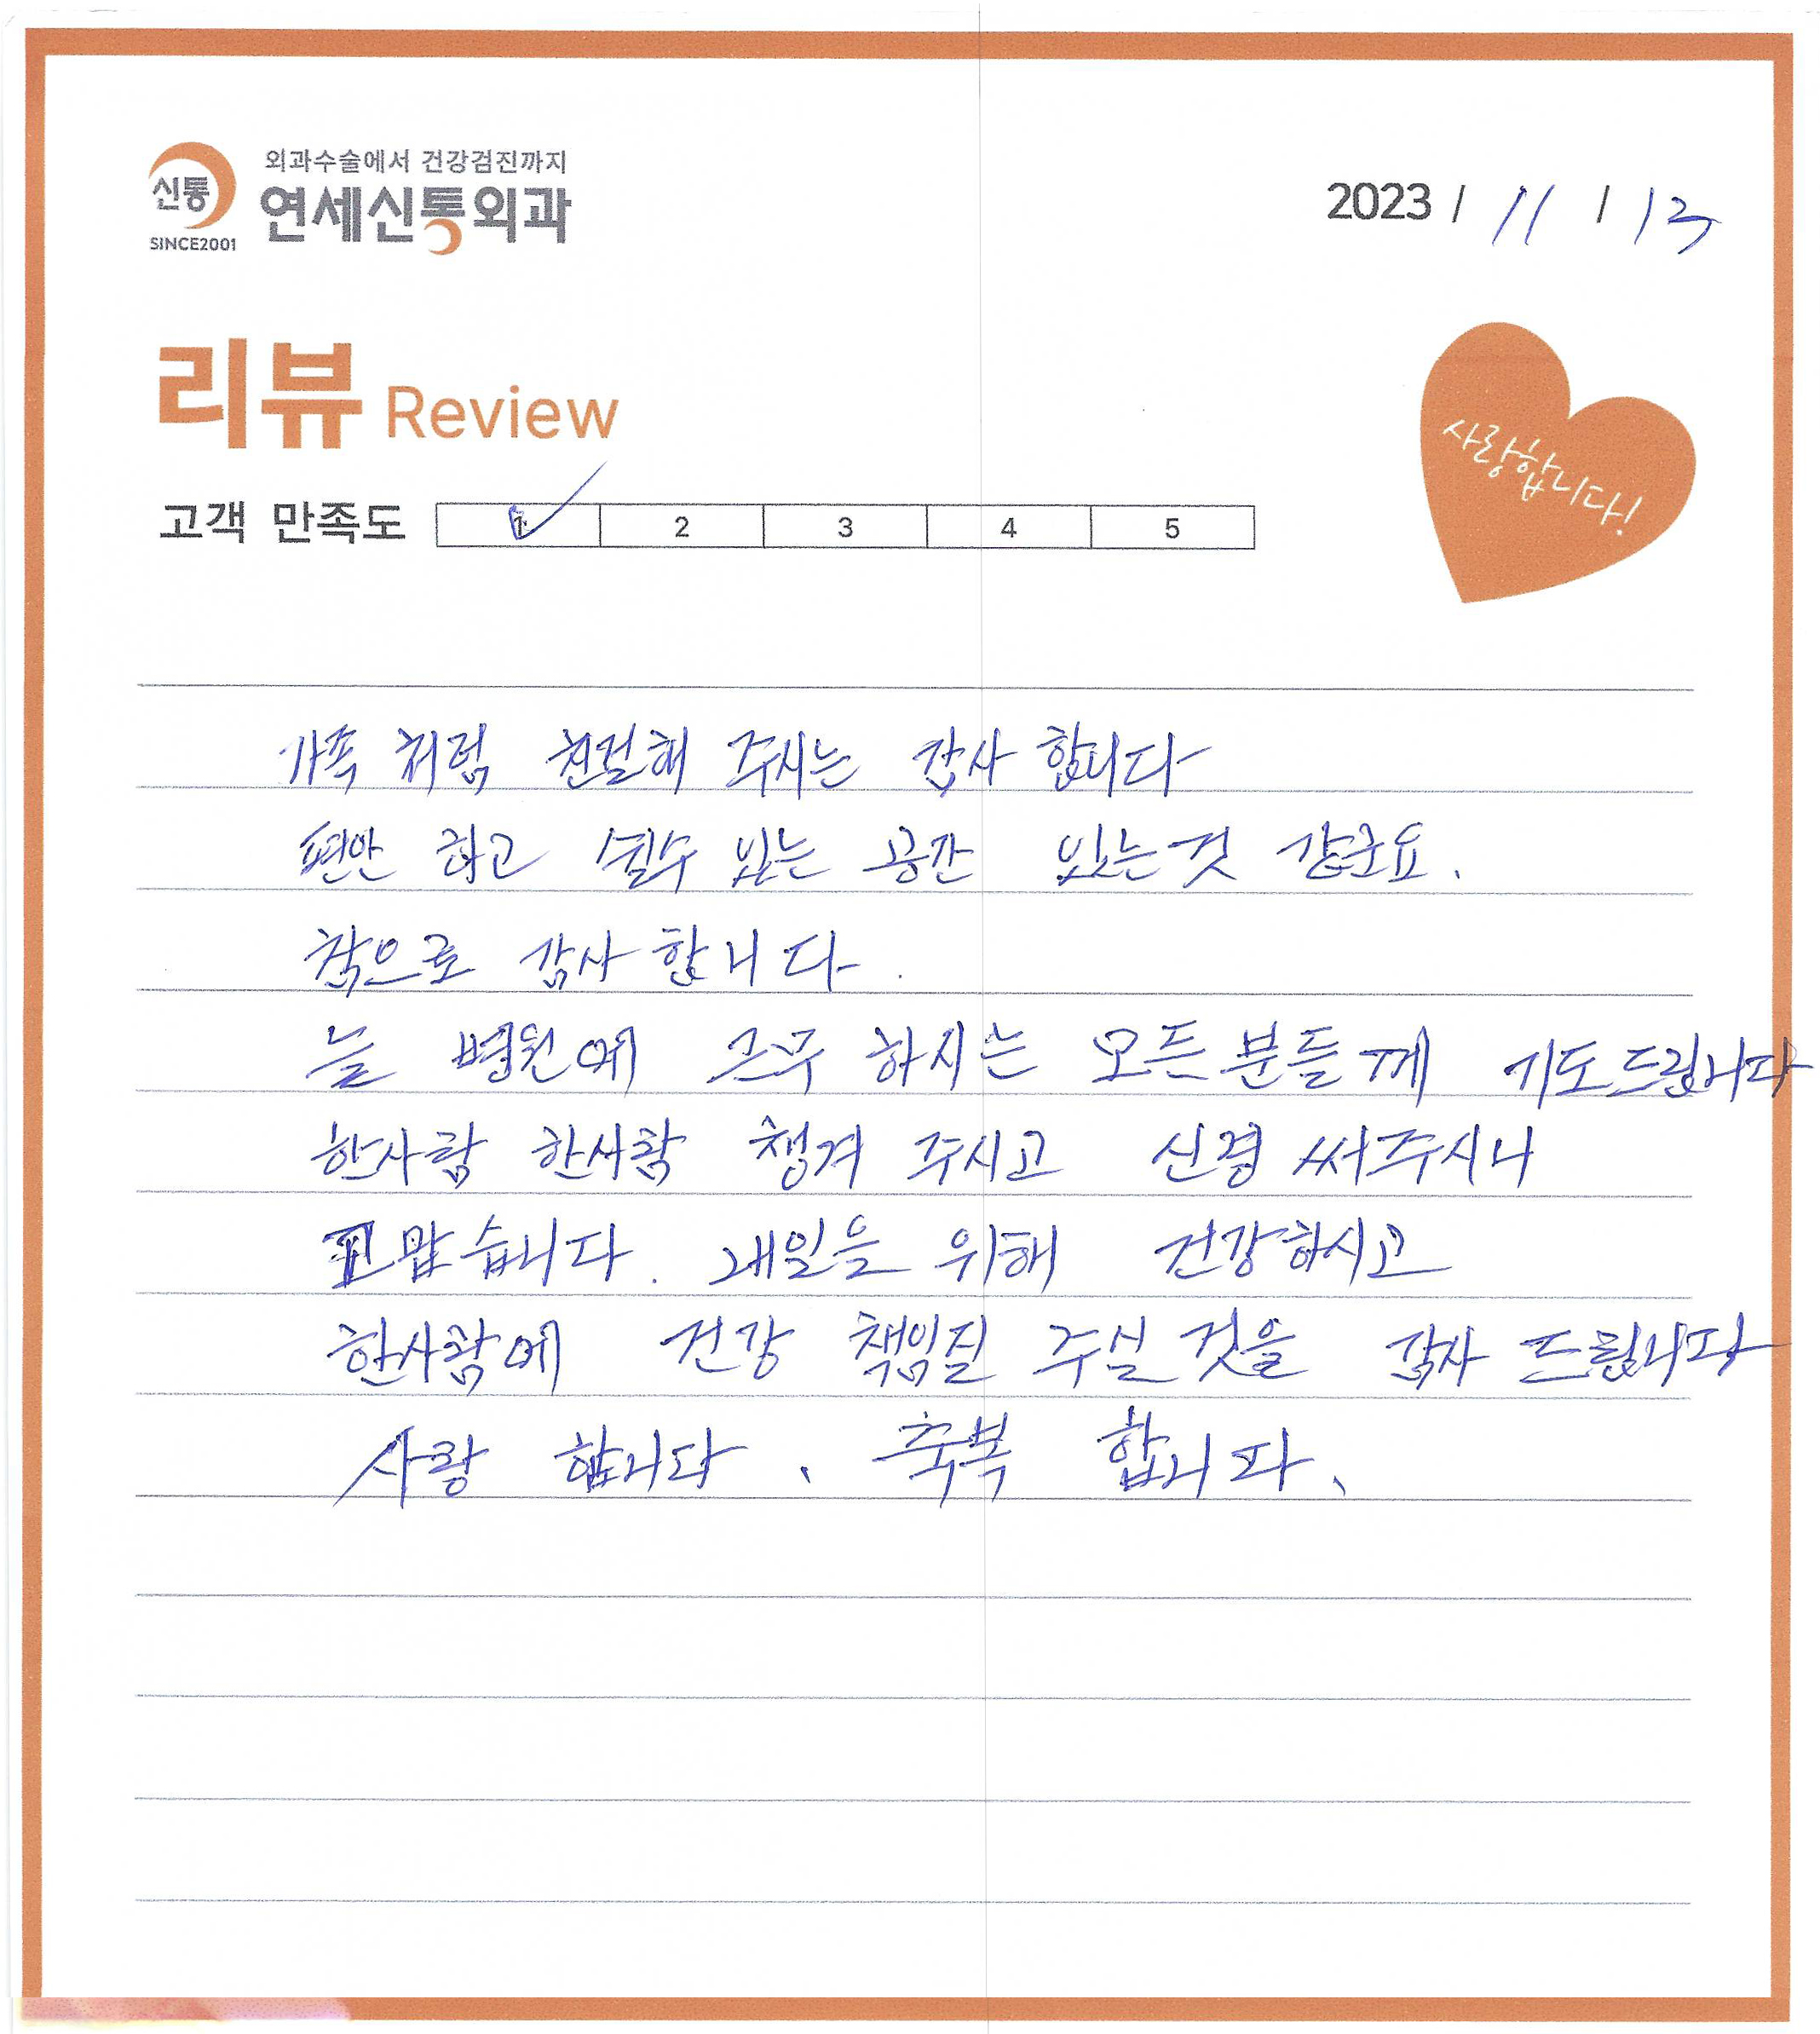 신통
SINCE2001
외과수술에서 건강검진까지
연세신통외과
2023 / 11 / 13
리뷰 Review
사랑합니다!
고객 만족도 1 2 3 4 5
가족 처럼 친절해 주시는 감사 합니다
편안 하고 쉴수 있는 공간 있는것 같군요.
참으로 감사 합니다.
늘 병원에 근무 하시는 모든분들께 기도드립니다
한사람 한사람 챙겨 주시고 신경 써주시니
고맙습니다. 내일을 위해 건강하시고
한사람에 건강 책임질 주실 것을 감사 드립니다
사랑 합니다. 축복 합니다.